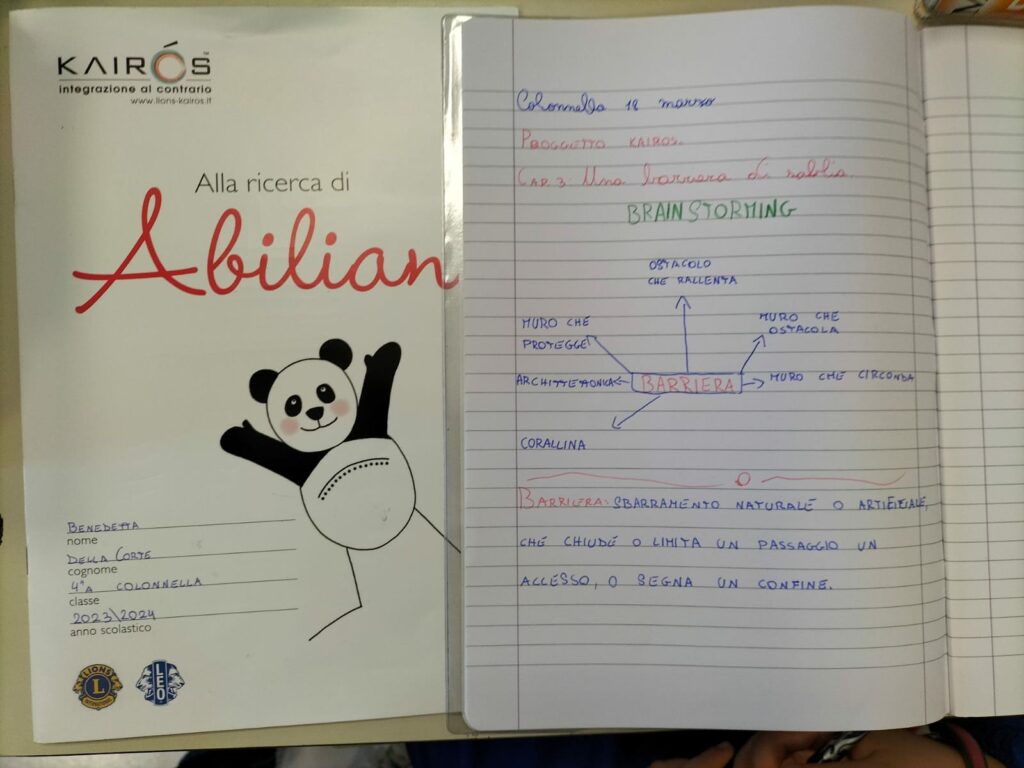 KAIRÓS
integrazione al contrario
www.lions-kairos.it
Alla ricerca di
Abilian
BENEDETTA
nome
DELLA CORTE
cognome
4ªA COLONNELLA
classe
2023\2024
anno scolastico
LIONS
L
INTERNATIONAL
LEO
Colonnella 18 marzo
PROGGETTO KAIROS.
CAP. 3: Una barriera di nebbia.
BRAINSTORMING
OSTACOLO
CHE RALLENTA
MURO CHE
PROTEGGE
MURO CHE
OSTACOLA
ARCHITTETONICA
BARRIERA
MURO CHE CIRCONDA
CORALLINA
BARRIERA: SBARRAMENTO NATURALE O ARTIFIZIALE,
CHE CHIUDE O LIMITA UN PASSAGGIO UN
ACCESSO, O SEGNA UN CONFINE.